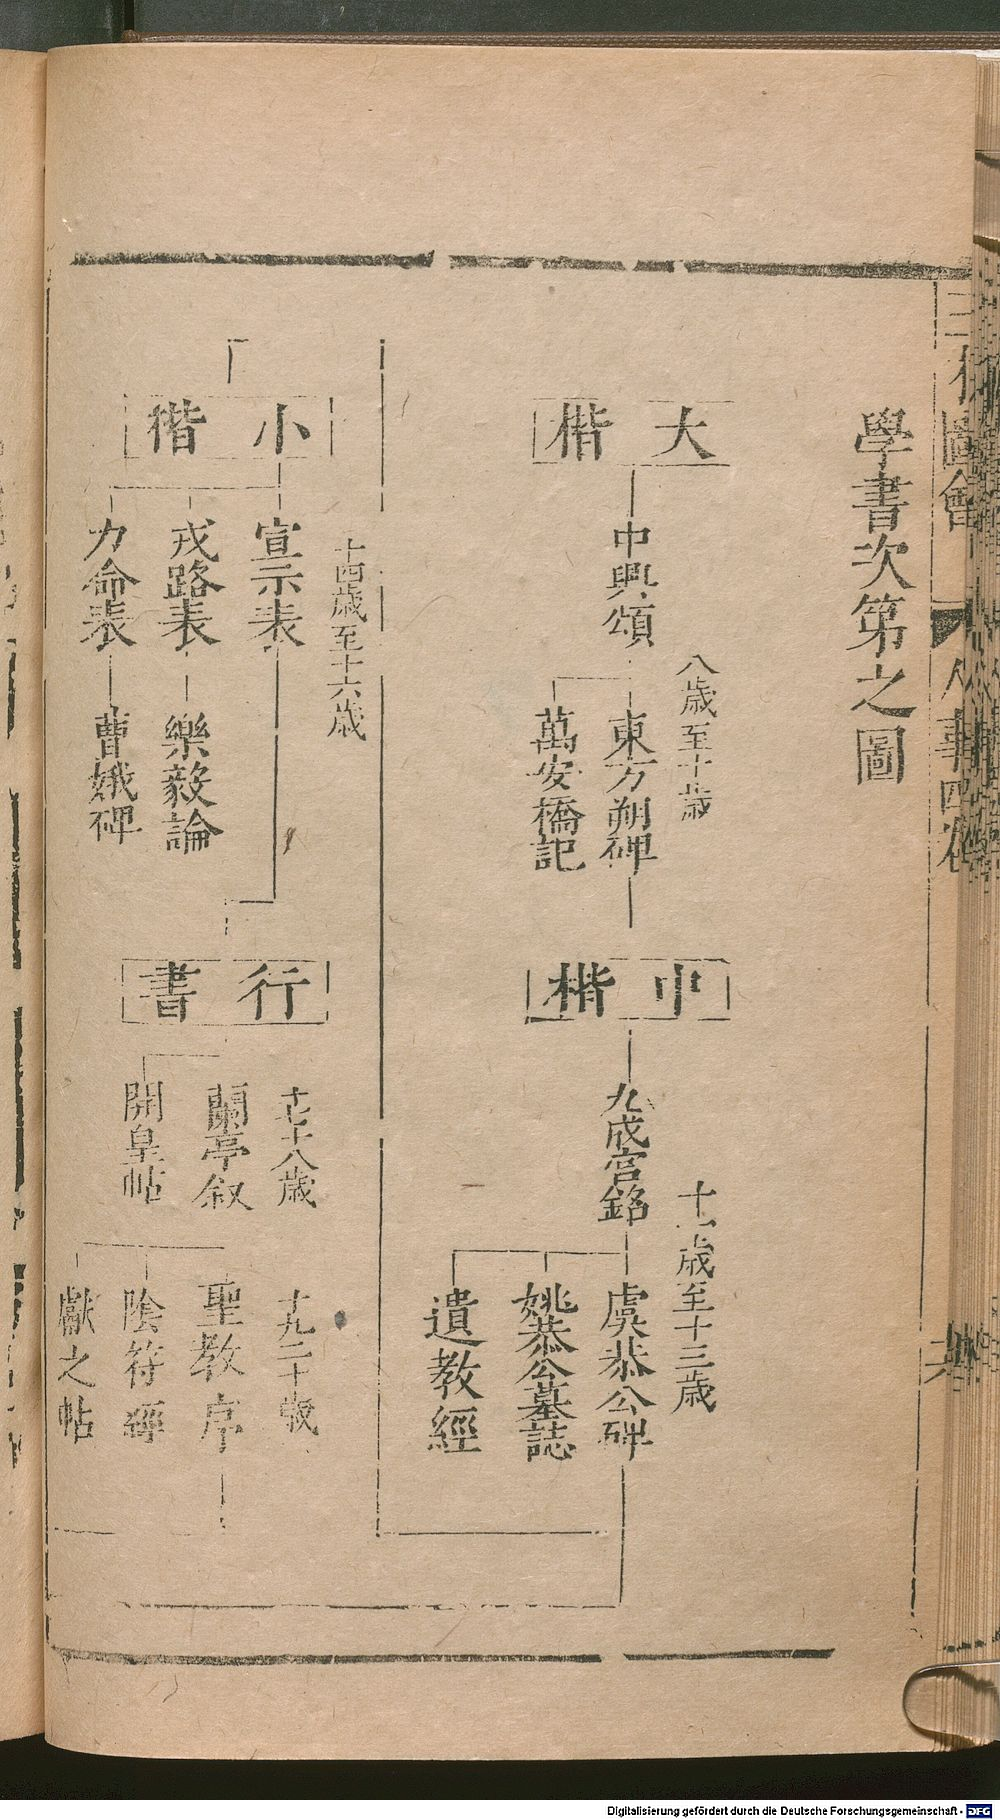 三才圖會
人事四卷
學書次第之圖
大楷
八歲至十歲
中興頌
東方朔碑
萬安橋記
中楷
十一歲至十三歲
九成宮銘
虞恭公碑
姚恭公墓誌
遺教經
小楷
十四歲至十六歲
宣示表
戎路表
力命表
樂毅論
曹娥碑
行書
十七十八歲
蘭亭叙
開皇帖
十九二十歲
聖教序
陰符經
獻之帖
Digitalisierung gefördert durch die Deutsche Forschungsgemeinschaft - DFG